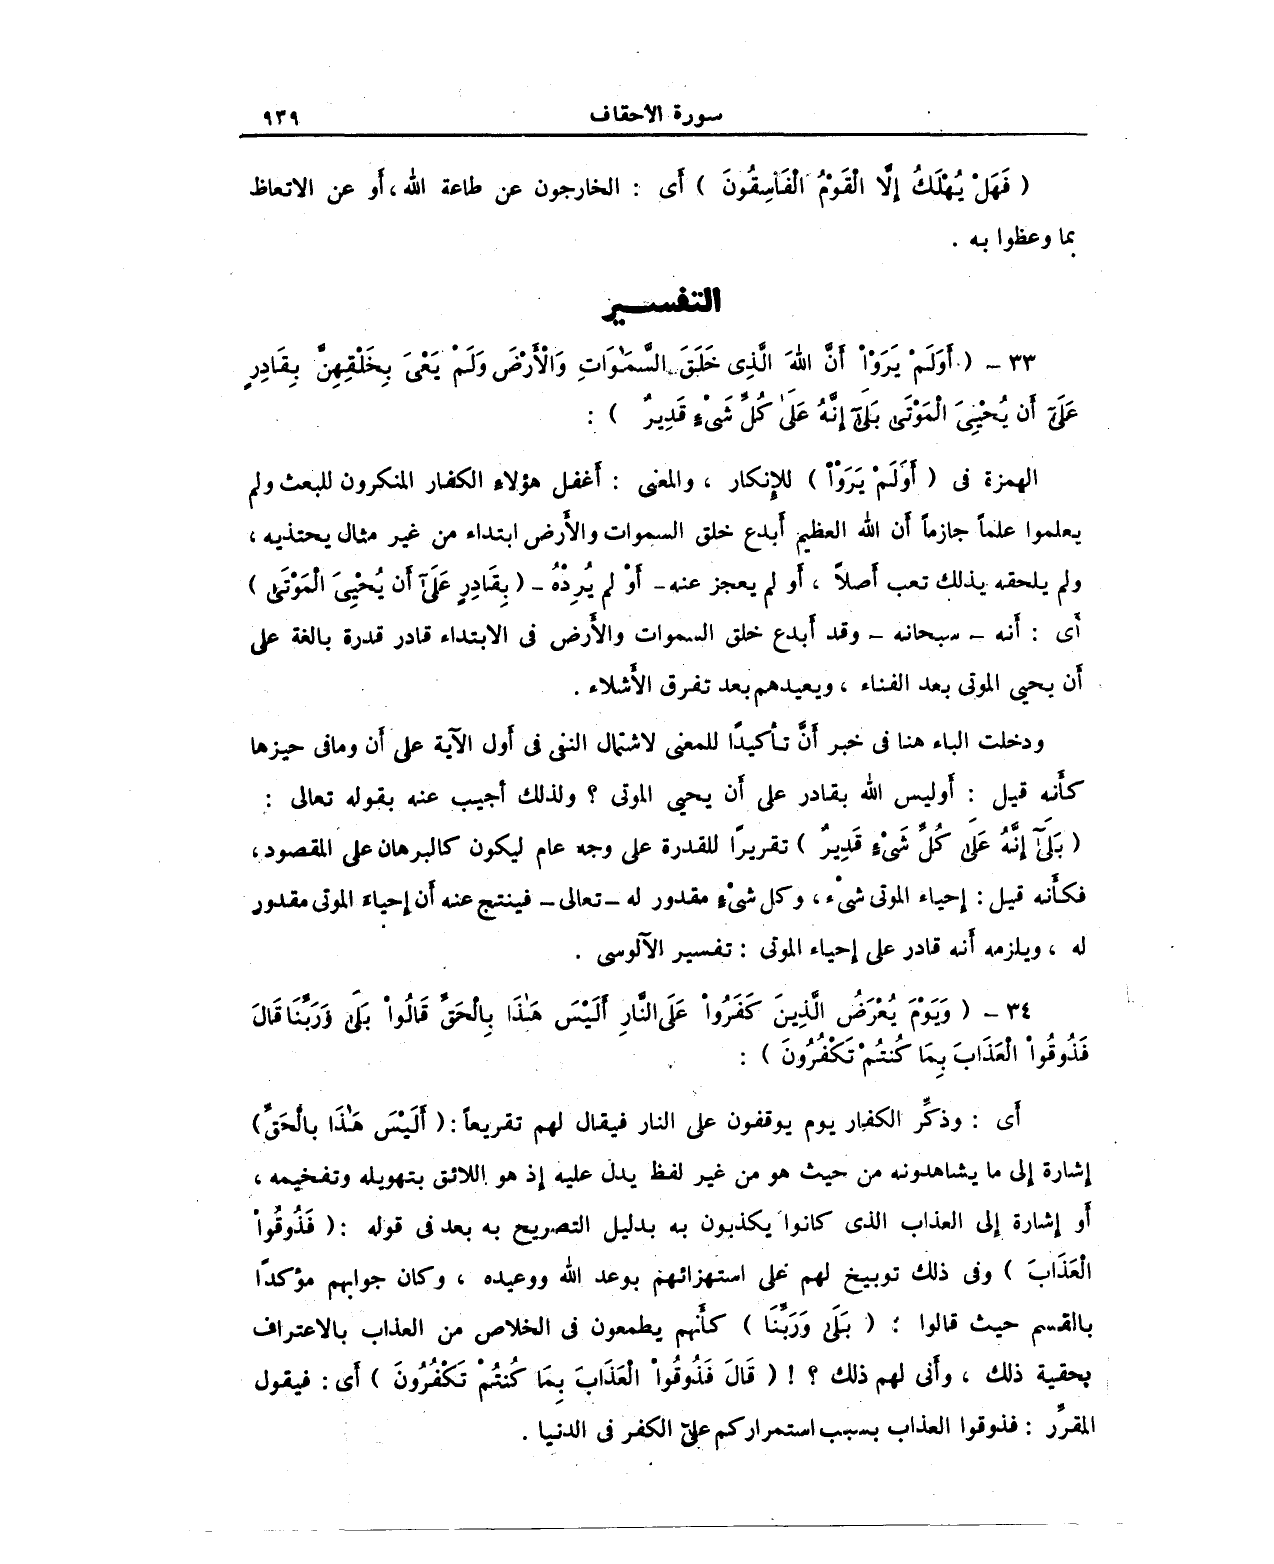 سورة الأحقاف ٩٣٩
( فَهَلْ يُهْلَكُ إِلَّا الْقَوْمُ الْفَاسِقُونَ ) أَى : الخارجون عن طاعة الله ، أَو عن الاتعاظ
بما وعظوا به .
التفسير
٣٣ - ( أَوَلَمْ يَرَوْاْ أَنَّ اللهَ الَّذِى خَلَقَ السَّمَٰوَٰتِ وَالْأَرْضَ وَلَمْ يَعْىَ بِخَلْقِهِنَّ بِقَٰدِرٍ
عَلَىٰٓ أَن يُحْيِىَ الْمَوْتَىٰ بَلَىٰٓ إِنَّهُ عَلَىٰ كُلِّ شَىْءٍ قَدِيرٌ ) :
الهمزة فى ( أَوَلَمْ يَرَوْاْ ) للإِنكار ، والمعنى : أَغفل هؤلاء الكفار المنكرون للبعث ولم
يعلموا علماً جازماً أن الله العظيم أَبدع خلق السموات والأَرض ابتداء من غير مثال يحتذيه ،
ولم يلحقه بذلك تعب أَصلاً ، أَو لم يعجز عنه - أَوْ لم يُرِدْهُ - ( بِقَٰدِرٍ عَلَىٰٓ أَن يُحْيِىَ الْمَوْتَىٰ )
أَى : أَنه - سبحانه - وقد أَبدع خلق السموات والأَرض فى الابتداء قادر قدرة بالغة على
أَن يحيي الموتى بعد الفناء ، ويعيدهم بعد تفرق الأَشلاء .
ودخلت الباء هنا فى خبر أَنَّ تأكيدًا للمعنى لاشتمال النفى فى أَول الآية على أَن ومافى حيزها
كأَنه قيل : أَوليس الله بقادر على أَن يحيي الموتى ؟ ولذلك أجيب عنه بقوله تعالى :
( بَلَىٰٓ إِنَّهُ عَلَىٰ كُلِّ شَىْءٍ قَدِيرٌ ) تقريرًا للقدرة على وجه عام ليكون كالبرهان على المقصود ،
فكأَنه قيل : إحياء الموتى شىْء ، وكل شىْءٍ مقدور له - تعالى - فينتج عنه أَن إحياءَ الموتى مقدور
له ، ويلزمه أَنه قادر على إحياء الموتى : تفسير الآلوسى .
٣٤ - ( وَيَوْمَ يُعْرَضُ الَّذِينَ كَفَرُواْ عَلَى النَّارِ أَلَيْسَ هَٰذَا بِالْحَقِّ قَالُواْ بَلَىٰ وَرَبِّنَا قَالَ
فَذُوقُواْ الْعَذَابَ بِمَا كُنتُمْ تَكْفُرُونَ ) :
أَى : وذكِّر الكفار يوم يوقفون على النار فيقال لهم تقريعاً : ( أَلَيْسَ هَٰذَا بِالْحَقِّ )
إشارة إلى ما يشاهدونه من حيث هو من غير لفظ يدل عليه إذ هو اللائق بتهويله وتفخيمه ،
أَو إشارة إلى العذاب الذى كانوا يكذبون به بدليل التصريح به بعد فى قوله : ( فَذُوقُواْ
الْعَذَابَ ) وفى ذلك توبيخ لهم على استهزائهم بوعد الله ووعيده ، وكان جوابهم مؤكدًا
بالقسم حيث قالوا : ( بَلَىٰ وَرَبِّنَا ) كأَنهم يطمعون فى الخلاص من العذاب بالاعتراف
بحقية ذلك ، وأَنى لهم ذلك ؟ ! ( قَالَ فَذُوقُواْ الْعَذَابَ بِمَا كُنتُمْ تَكْفُرُونَ ) أَى : فيقول
المقرِّر : فذوقوا العذاب بسبب استمراركم على الكفر فى الدنيا .